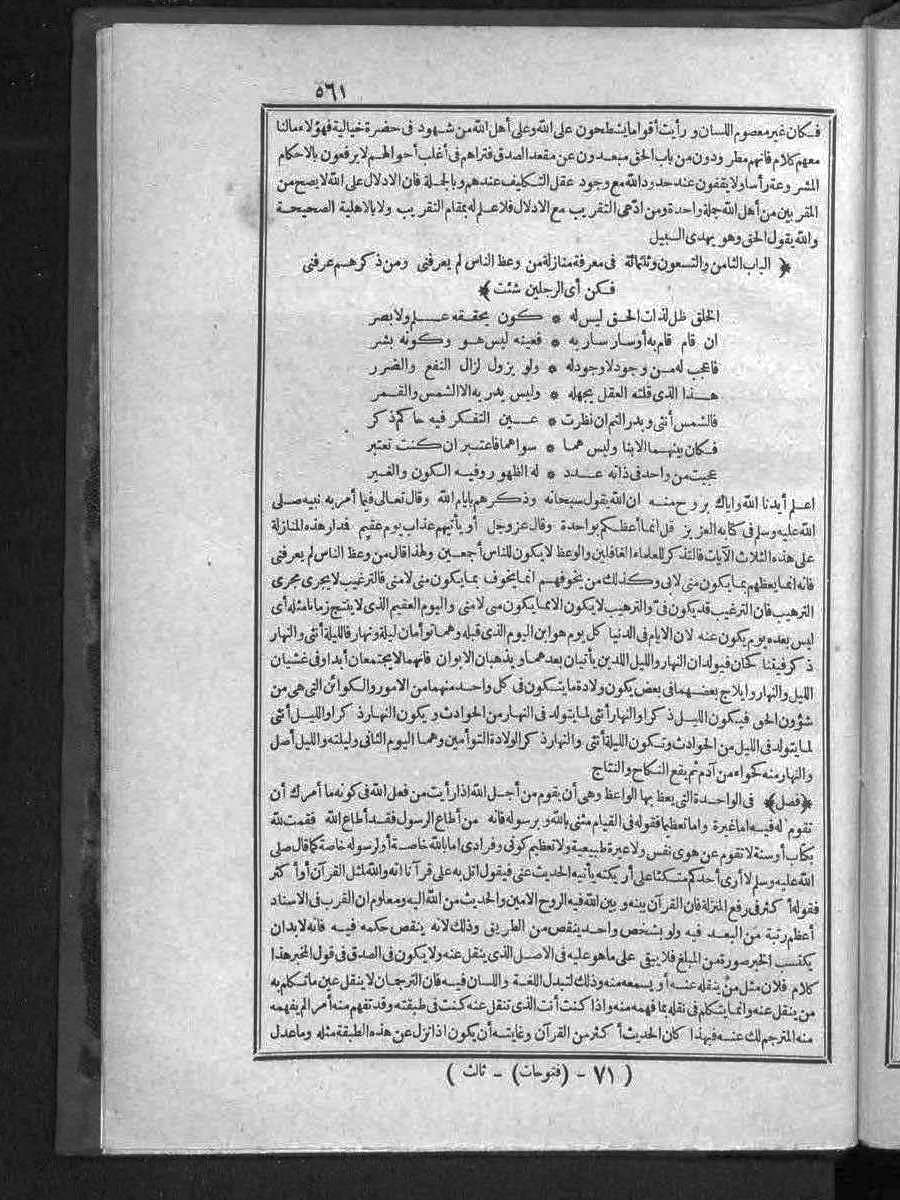 ٥٦١
فكان غير معصوم اللسان ورأيت أقواما يشطحون على الله وعلى أهل الله من شهود فى حضرة خيالية فهؤلاء مالنا
معهم كلام فانهم مطرودون من باب الحق مبعدون عن مقعد الصدق فتراهم فى أغلب أحوالهم لا يرفعون بالاحكام
المشروعة رأسا ولا يقفون عند حدود الله مع وجود عقل التكليف عندهم وبالجملة فان الادلال على الله لا يصح من
المقربين من أهل الله جملة واحدة ومن ادّعى التقريب مع الادلال فلا علم له بمقام التقريب ولا بالاهلية الصحيحة
والله يقول الحق وهو يهدى السبيل
﴿ الباب الثامن والتسعون وثلثمائة فى معرفة منازلة من وعظ الناس لم يعرفنى ومن ذكرهم عرفنى
فكن أى الرجلين شئت ﴾
الخلق ظل لذات الحق ليس له * كون يحققه علم ولا بصر
ان قام قام به أو سار سار به * فعينه ليس هو وكونه بشر
فاعجب له من وجود لا وجود له * ولو يزول لزال النفع والضرر
هذا الذى قلته العقل يجهله * وليس يدريه الا الشمس والقمر
فالشمس أنثى وبدر التم ان نظرت * عين التفكر فيه حاكم ذكر
فكان بينهما الابنا وليس هما * سواهما فاعتبر ان كنت تعتبر
عجبت من واحد فى ذاته عدد * له الظهور وفيه الكون والغير
اعلم أيدنا الله واياك بروح منه ان الله يقول سبحانه وذكرهم بايام الله وقال تعالى فيما أمر به نبيه صلى
الله عليه وسلم فى كتابه العزيز قل انما أعظكم بواحدة وقال عز وجل أو يأتيهم عذاب يوم عقيم فدار هذه المنازلة
على هذه الثلاث الآيات فالتذكر للعلماء الغافلين والوعظ لا يكون للناس أجمعين ولهذا قال من وعظ الناس لم يعرفنى
فانه انما يعظهم بما يكون منى لابى وكذلك من يخوفهم انما يخوف بما يكون منى لا منى فالترغيب لا يجرى مجرى
الترهيب فان الترغيب قد يكون فىّ والترهيب لا يكون الا مما يكون منى لا منى واليوم العقيم الذى لا ينتج زمانا مثله أى
ليس بعده يوم يكون عنه لان الايام فى الدنيا كل يوم هو ابن اليوم الذى قبله وهما توأمان ليلة ونهار فالليلة أنثى والنهار
ذكر فيتنا كحان فيولدان النهار والليل اللذين يأتيان بعدهما ويذهبان الابوان فانهما لا يجتمعان أبدا وفى غشيان
الليل والنهار وايلاج بعضهما فى بعض يكون ولادة ما يتكون فى كل واحد منهما من الامور والكوائن التى هى من
شؤون الحق فيكون الليل ذكرا والنهار أنثى لما يتولد فى النهار من الحوادث ويكون النهار ذكرا والليل أنثى
لما يتولد فى الليل من الحوادث وتكون الليلة أنثى والنهار ذكر الولادة التوأمين وهما اليوم الثانى وليلته والليل أصل
والنهار منه كحواء من آدم ثم يقع النكاح والنتاج
﴿فصل﴾ فى الواحدة التى يعظ بها الواعظ وهى أن يقوم من أجل الله اذا رأيت من فعل الله فى كونه ما أمرك أن
تقوم له فيه اما غيرة واما تعظيما فقوله فى القيام مثنى بالله وبرسوله فانه من أطاع الرسول فقد أطاع الله فقمت لله
بكتاب أو سنة لا تقوم عن هوى نفس ولا غيرة طبيعية ولا تعظيم كونى وفرادى اما بالله خاصة أو لرسوله خاصة كما قال صلى
الله عليه وسلم لا أرى أحدكم متكئا على أريكته يأتيه الحديث عنى فيقول اتل به على قرآنا انه والله لمثل القرآن أو أكثر
فقوله أكثر فى رفع المنزلة فان القرآن بينه وبين الله فيه الروح الامين والحديث من الله اليه ومعلوم ان القرب فى الاسناد
أعظم رتبة من البعد فيه ولو بشخص واحد ينقص من الطريق وذلك لانه ينقص حكمه فيه فانه لابد ان
يكتسب الخبر صورة من المبلغ فلا يبقى على ما هو عليه فى الاصل الذى ينقل عنه ولا يكون فى الصدق فى قول المخبر هذا
كلام فلان مثل من ينقله عنه أو يسمعه منه وذلك لتبدل اللغة واللسان فيه فان الترجمان لا ينقل عين ما تكلم به
من ينقل عنه وانما يتكلم فى نقله بما فهمه منه واذا كنت أنت الذى تنقل عنه كنت فى طبقته وقد تفهم منه أمرا لم يفهمه
منه المترجم لك عنه فبهذا كان الحديث أكثر من القرآن وغايته أن يكون اذا نزل عن هذه الطبقة مثله وما عدل
( ٧١ - (فتوحات) - ثالث )